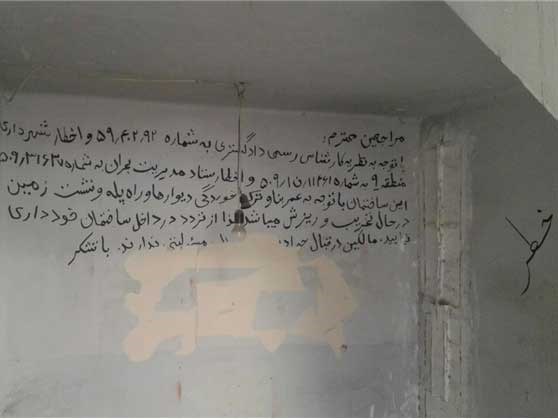 مراجعین محترم:
با توجه به نظریه کارشناس رسمی دادگستری به شماره ۵۹،۴۰۲،۹۲ و اخطار شهرداری
منطقه ۹ به شماره و اخطار ستاد مدیریت بحران به شماره
این ساختمان با توجه به عمر بنا و ترک خوردگی دیوارها و راه پله و نشست زمین
در حال تخریب و ریزش میباشد لذا از تردد در داخل ساختمان خودداری
فرمایید. مالکین در قبال مسئولیتی ندارند. با تشکر
خطر